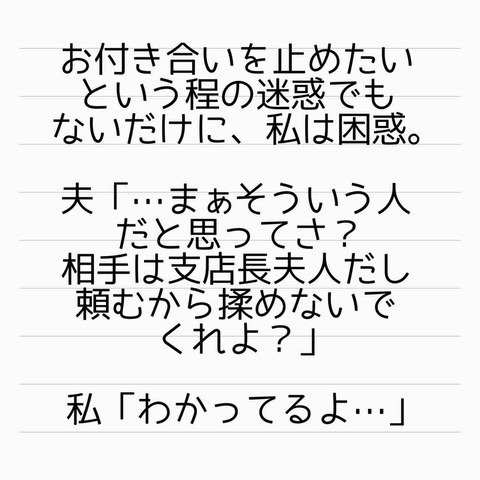 お付き合いを止めたい
という程の迷惑でも
ないだけに、私は困惑。
夫「…まぁそういう人
だと思ってさ？
相手は支店長夫人だし
頼むから揉めないで
くれよ？」
私「わかってるよ…」